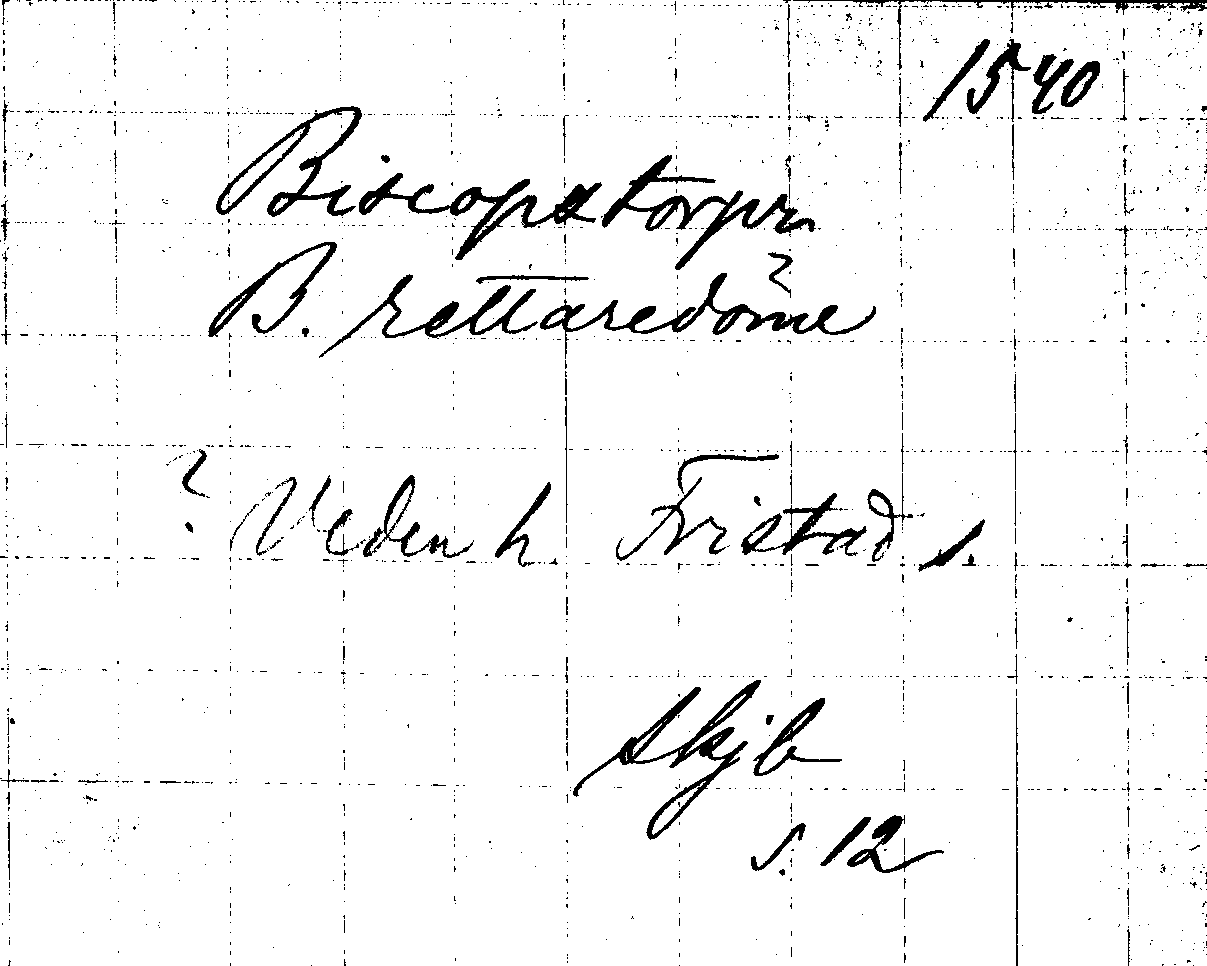 1540
Biscopstorpr
B. rettaredöme ?
? Veden h. Fristad s.
skjb
s. 12